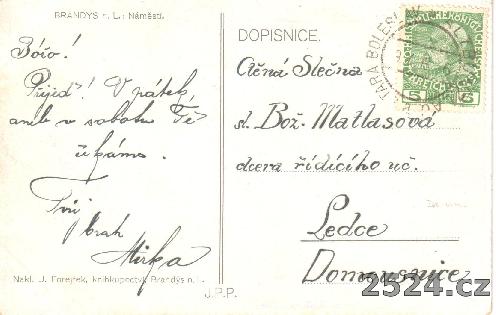 BRANDÝS n. L.: Náměstí.
Bóžo!
Přijeď! V pátek
aneb v sobotu Tě
čekáme.
Tvůj
brah
Mirka
Nakl. J. Forejtek, knihkupectví Brandýs n. L.
J.P.P.
DOPISNICE.
Ctěná Slečna
sl. Bož. Matlasová
dcera řídícího uč.
Ledce
Domousnice
STARÁ BOLESLAV
5
5
2524.cz